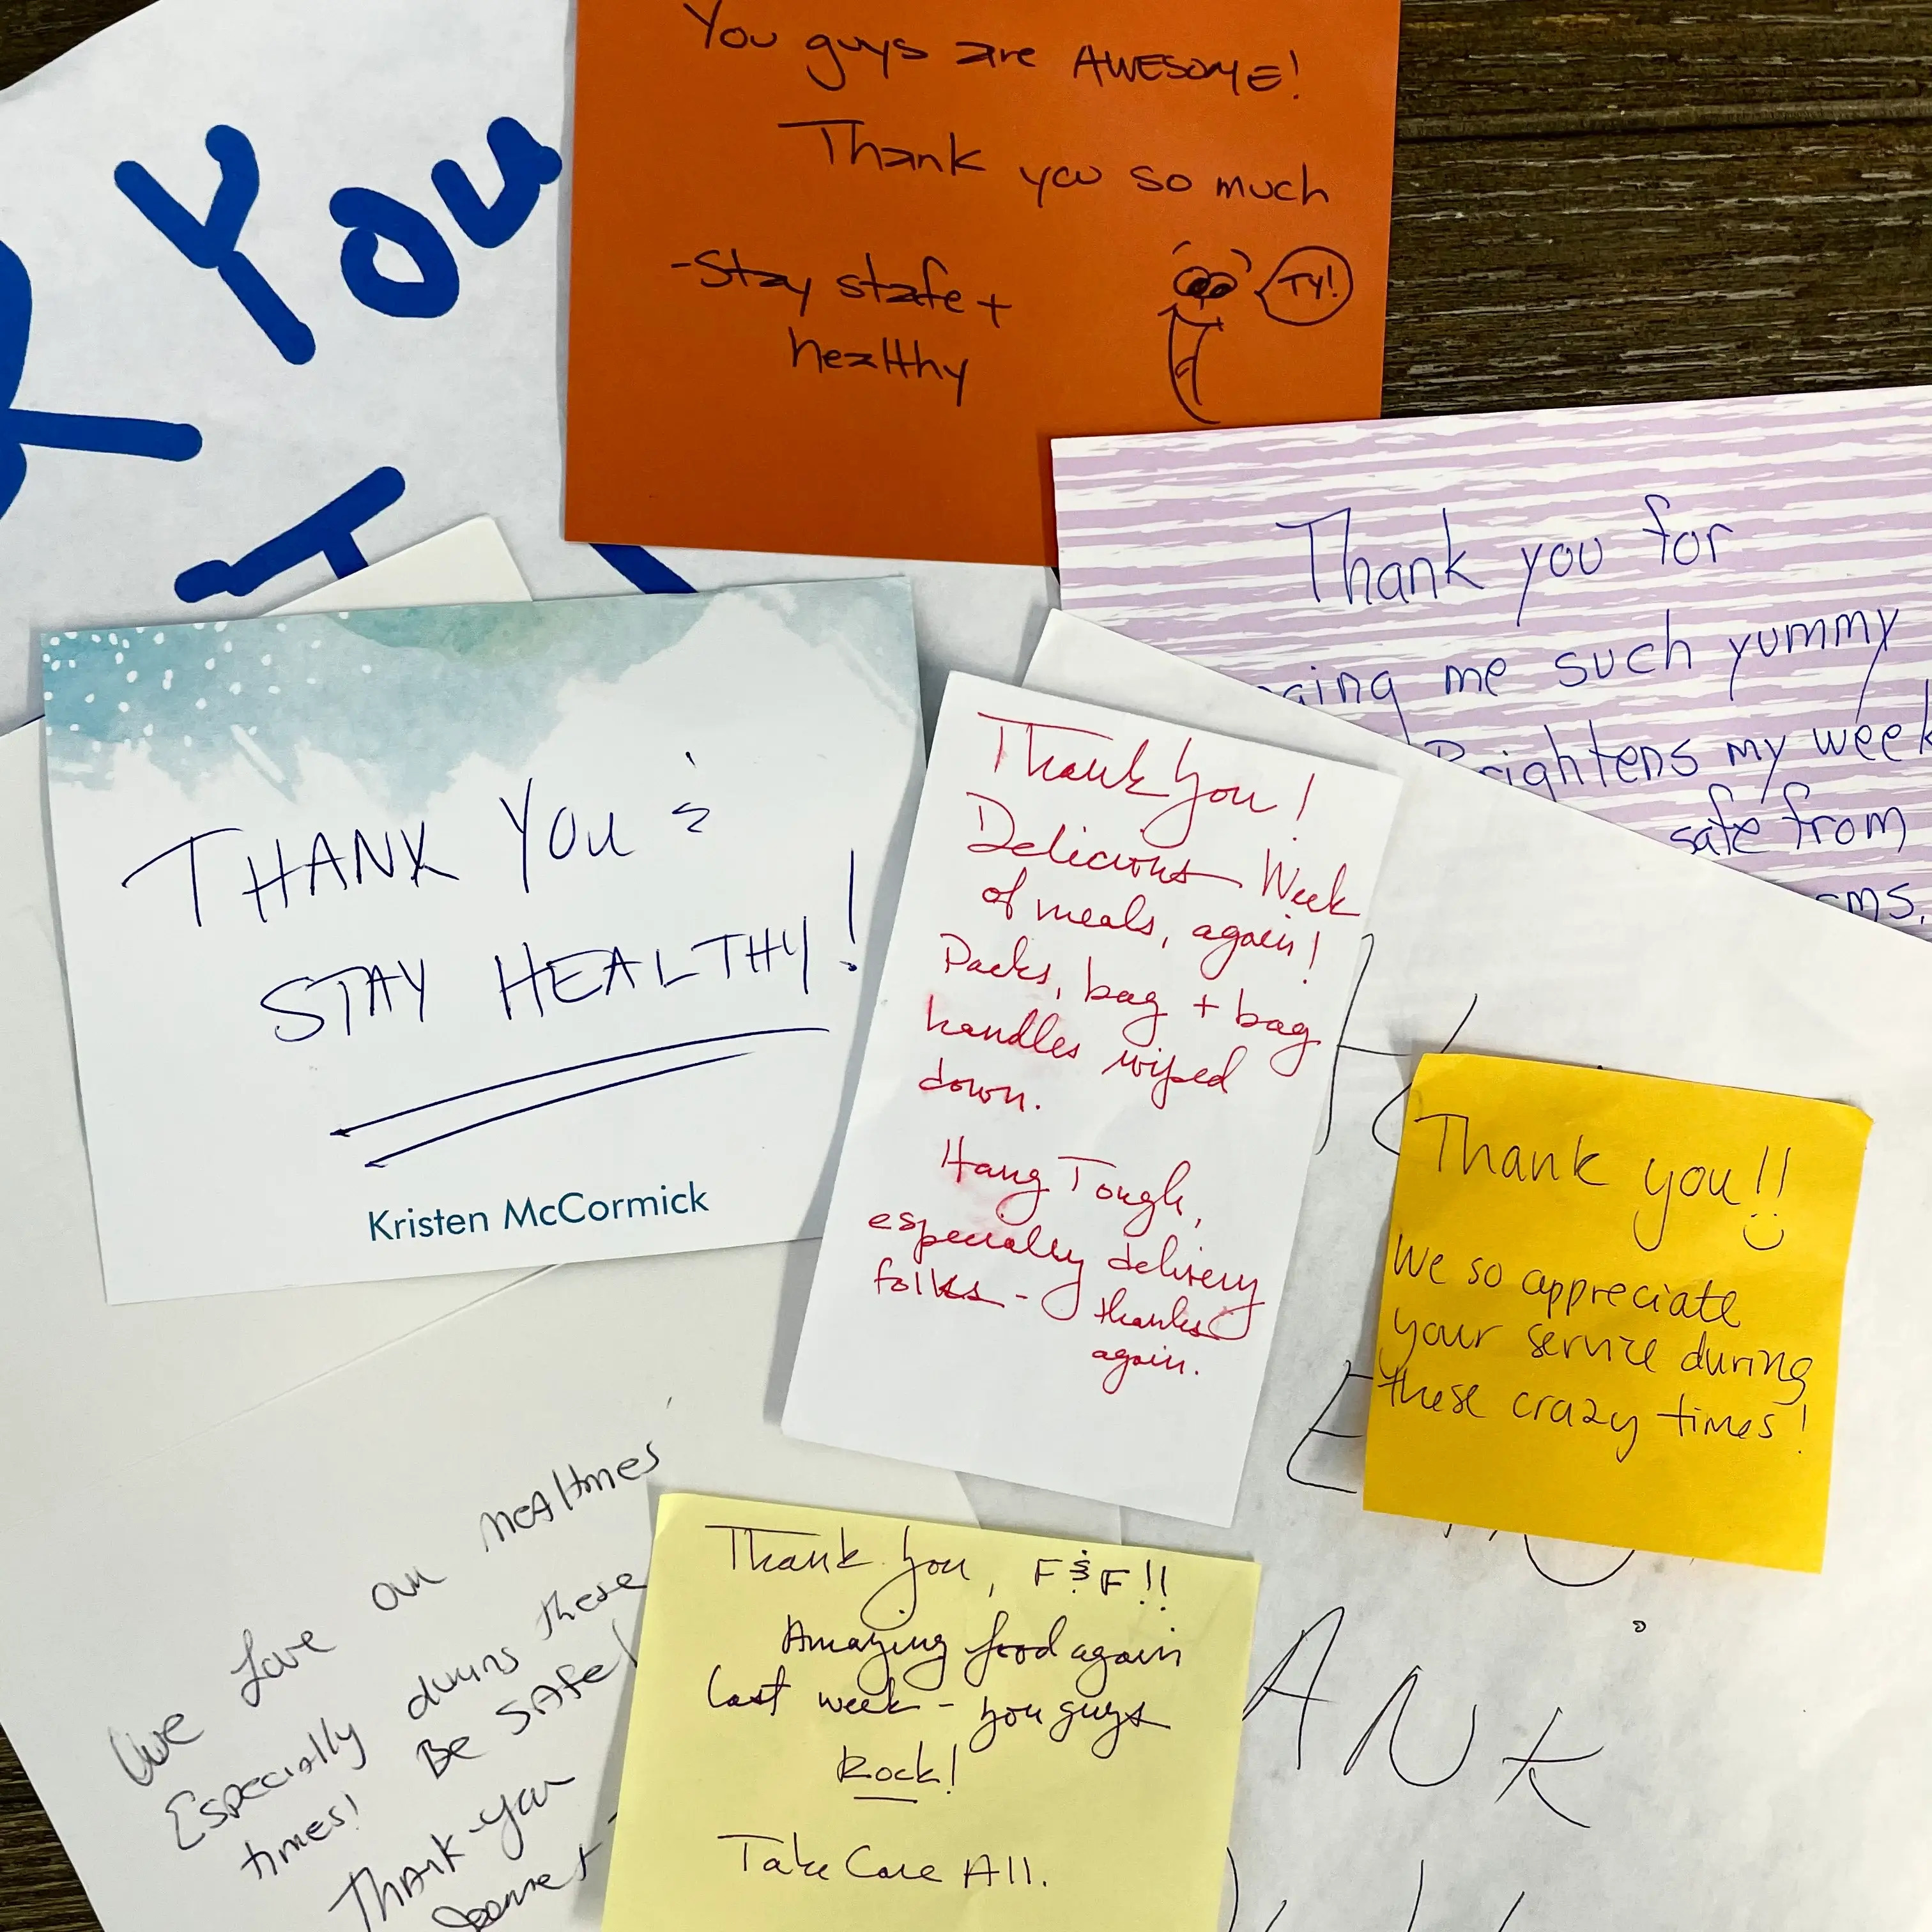 You
You guys are AWESOME!
Thank you so much
-Stay stafe +
healthy
TY!
Thank you for
me such yummy
Brightens my week
safe from
THANK YOU &
STAY HEALTHY!
Kristen McCormick
Thank you!
Delicious Week
of meals, again!
Packs, bag + bag
handles wiped
down.
Hang Tough,
especially delivery
folks - thanks
again.
Thank you!!
We so appreciate
your service during
these crazy times!
We Love our mealtimes
Especially during these
times! Be SAfe!
Thank you
Thank you, F&F!!
Amazing food again
last week - you guys
Rock!
Take Care All.
ANK